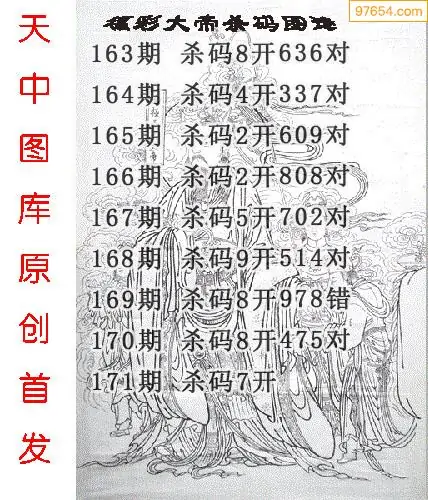 97654.com
福彩大帝杀码图迷
天中图库原创首发
163期 杀码8开636对
164期 杀码4开337对
165期 杀码2开609对
166期 杀码2开808对
167期 杀码5开702对
168期 杀码9开514对
169期 杀码8开978错
170期 杀码8开475对
171期 杀码7开